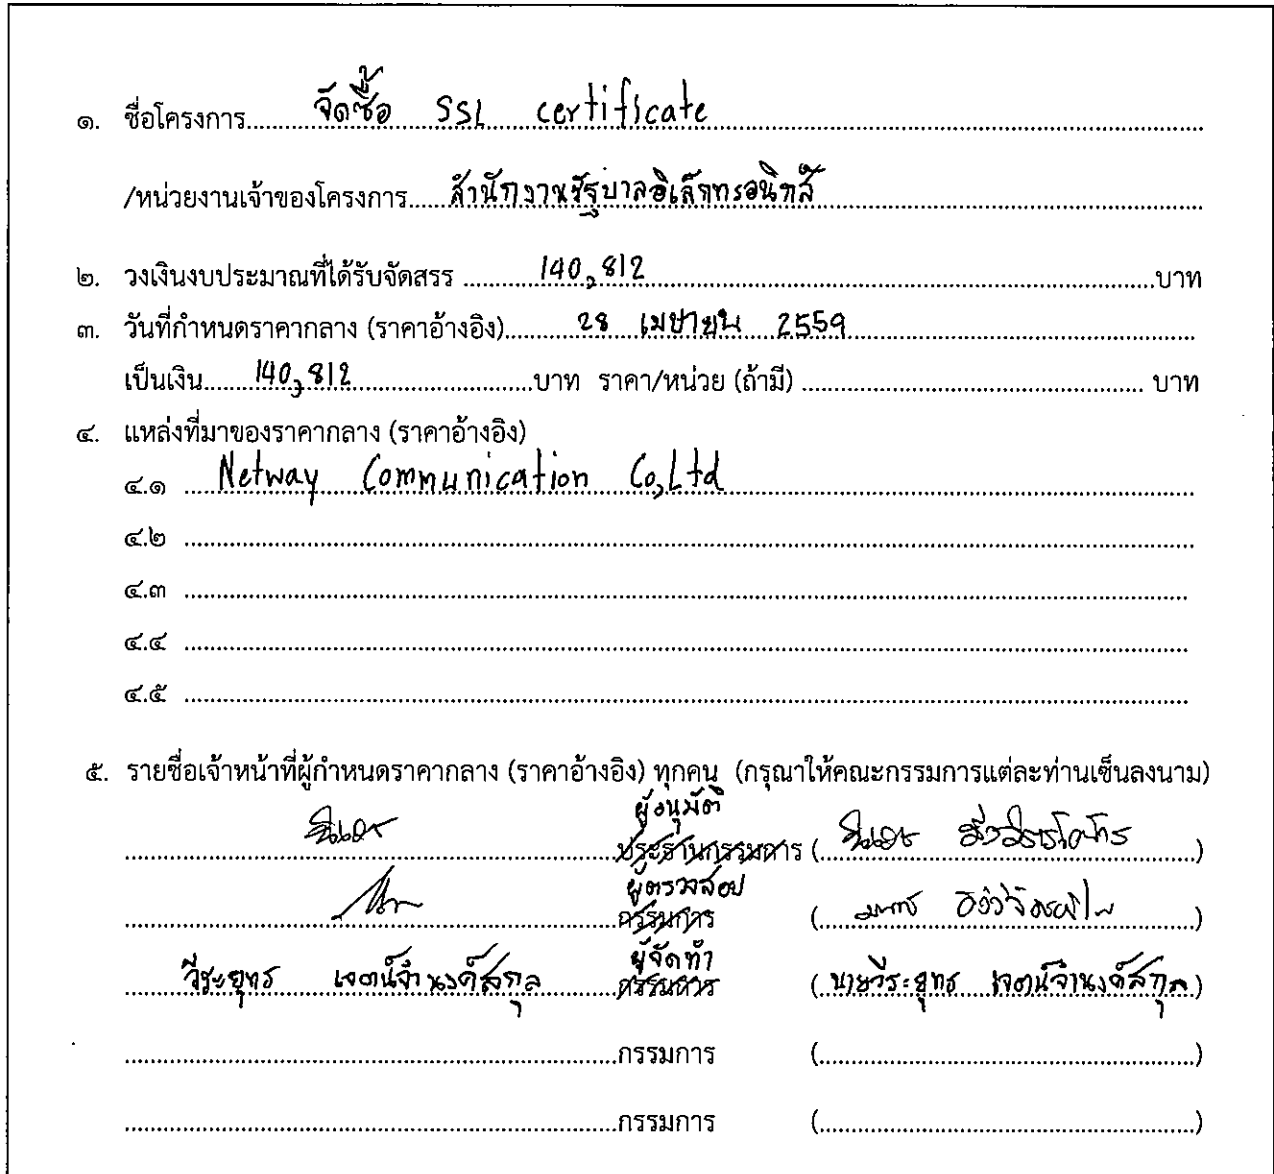 ๑. ชื่อโครงการ จัดซื้อ SSL certificate
/หน่วยงานเจ้าของโครงการ สำนักงานรัฐบาลอิเล็กทรอนิกส์
๒. วงเงินงบประมาณที่ได้รับจัดสรร 140,812 บาท
๓. วันที่กำหนดราคากลาง (ราคาอ้างอิง) 28 เมษายน 2559
เป็นเงิน 140,812 บาท ราคา/หน่วย (ถ้ามี) บาท
๔. แหล่งที่มาของราคากลาง (ราคาอ้างอิง)
๔.๑ Netway Communication Co,Ltd
๔.๒
๔.๓
๔.๔
๔.๕
๕. รายชื่อเจ้าหน้าที่ผู้กำหนดราคากลาง (ราคาอ้างอิง) ทุกคน (กรุณาให้คณะกรรมการแต่ละท่านเซ็นลงนาม)
ผู้อนุมัติ
ประธานกรรมการ ( )
ผู้ตรวจสอบ
กรรมการ ( )
ผู้จัดทำ
วีระยุทธ เจตน์จำนงค์สกุล กรรมการ (นายวีระยุทธ เจตน์จำนงค์สกุล)
กรรมการ ( )
กรรมการ ( )